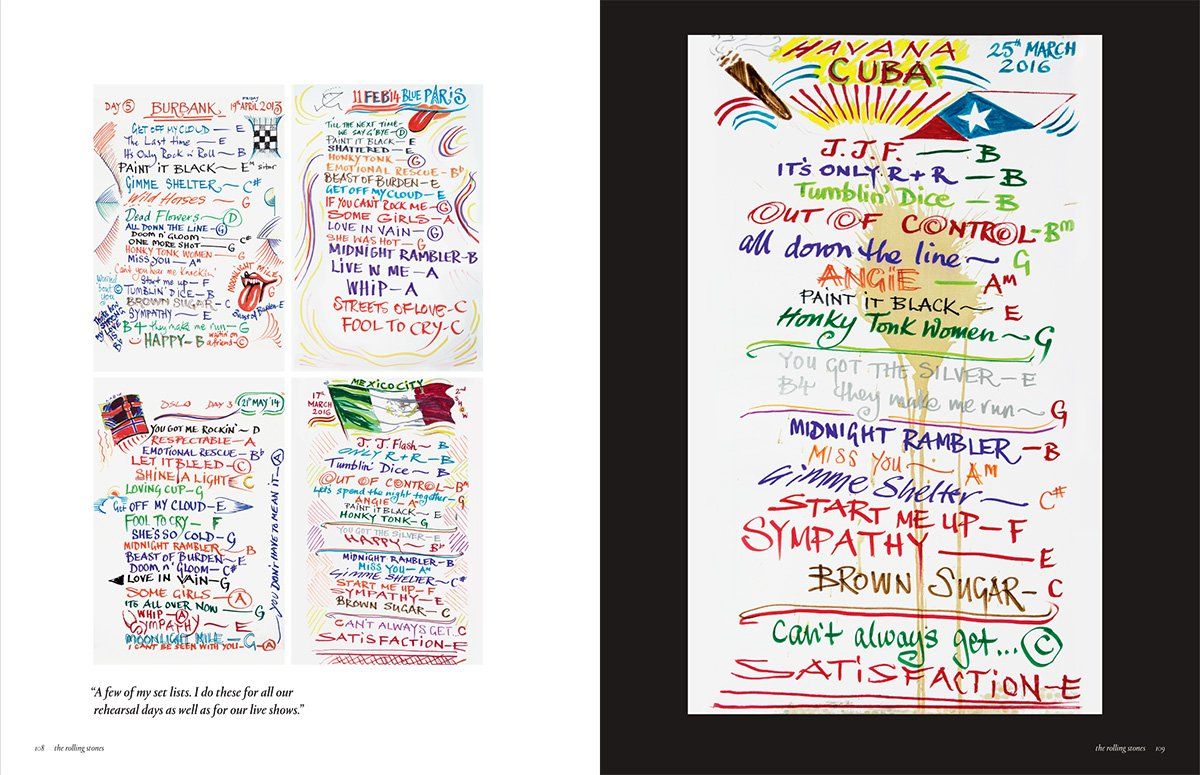 DAY 5 BURBANK FRIDAY 19th APRIL 2013
GET OFF MY CLOUD – E
The Last Time – E
It's Only Rock n' Roll – B
PAINT IT BLACK – Em sitar
GIMME SHELTER – C#
Wild Horses – G
Dead Flowers – D
ALL DOWN THE LINE – G
DOOM n' GLOOM – C#
ONE MORE SHOT – G
HONKY TONK WOMEN – G
MISS YOU – Am
Can't you hear me Knockin'
Start me up – F
TUMBLIN' DICE – B
BROWN SUGAR – C
SYMPATHY – E
B4 they make me run – G
HAPPY – B
waitin' on a friend – C
MOONLIGHT MILE G
Beast of Burden – E
Worried bout you C
Think I'm
11 FEB 14 BLUE PARIS
TILL THE NEXT TIME –
WE SAY G'BYE – D
PAINT IT BLACK – E
SHATTERED – E
HONKY TONK – G
EMOTIONAL RESCUE – Bb
BEAST OF BURDEN – E
GET OFF MY CLOUD – E
IF YOU CAN'T ROCK ME – G
SOME GIRLS – A
LOVE IN VAIN – G
SHE WAS HOT – G
MIDNIGHT RAMBLER – B
LIVE W ME – A
WHIP – A
STREETS OF LOVE – C
FOOL TO CRY – C
OSLO DAY 3 21st MAY '14
YOU GOT ME ROCKIN' – D
RESPECTABLE – A
EMOTIONAL RESCUE – Bb
LET IT BLEED – C
SHINE A LIGHT C
LOVING CUP – G
Get OFF MY CLOUD – E
FOOL TO CRY – F
SHE'S SO COLD – G
MIDNIGHT RAMBLER – B
BEAST OF BURDEN – E
DOOM n' GLOOM – C#
LOVE IN VAIN – G
SOME GIRLS – A
IT'S ALL OVER NOW – G
WHIP – A
SYMPATHY – E
MOONLIGHT MILE – G
I CAN'T BE SEEN WITH YOU – A
YOU DON'T HAVE TO MEAN IT – A
MEXICO CITY
17th MARCH 2016
2nd SHOW
J. J. Flash – B
ONLY R + R – B
Tumblin' Dice – B
OUT OF CONTROL – Bm
Let's spend the night together – G
ANGIE – Am
PAINT IT BLACK – E
HONKY TONK – G
YOU GOT THE SILVER – E
HAPPY – Bb
MIDNIGHT RAMBLER – B
MISS YOU – Am
GIMME SHELTER – C#
START ME UP – F
SYMPATHY – E
BROWN SUGAR – C
CAN'T ALWAYS GET.. C
SATISFACTION – E
"A few of my set lists. I do these for all our
rehearsal days as well as for our live shows."
108 the rolling stones
HAVANA
CUBA
25th MARCH
2016
J. J. F. – B
IT'S ONLY R + R – B
Tumblin' Dice – B
OUT OF CONTROL – Bm
all down the line – G
ANGIE – Am
PAINT IT BLACK – E
Honky Tonk Women – G
YOU GOT THE SILVER – E
B4 they make me run – G
MIDNIGHT RAMBLER – B
MISS YOU – Am
Gimme Shelter – C#
START ME UP – F
SYMPATHY – E
BROWN SUGAR – C
Can't always get... C
SATISFACTION – E
the rolling stones 109